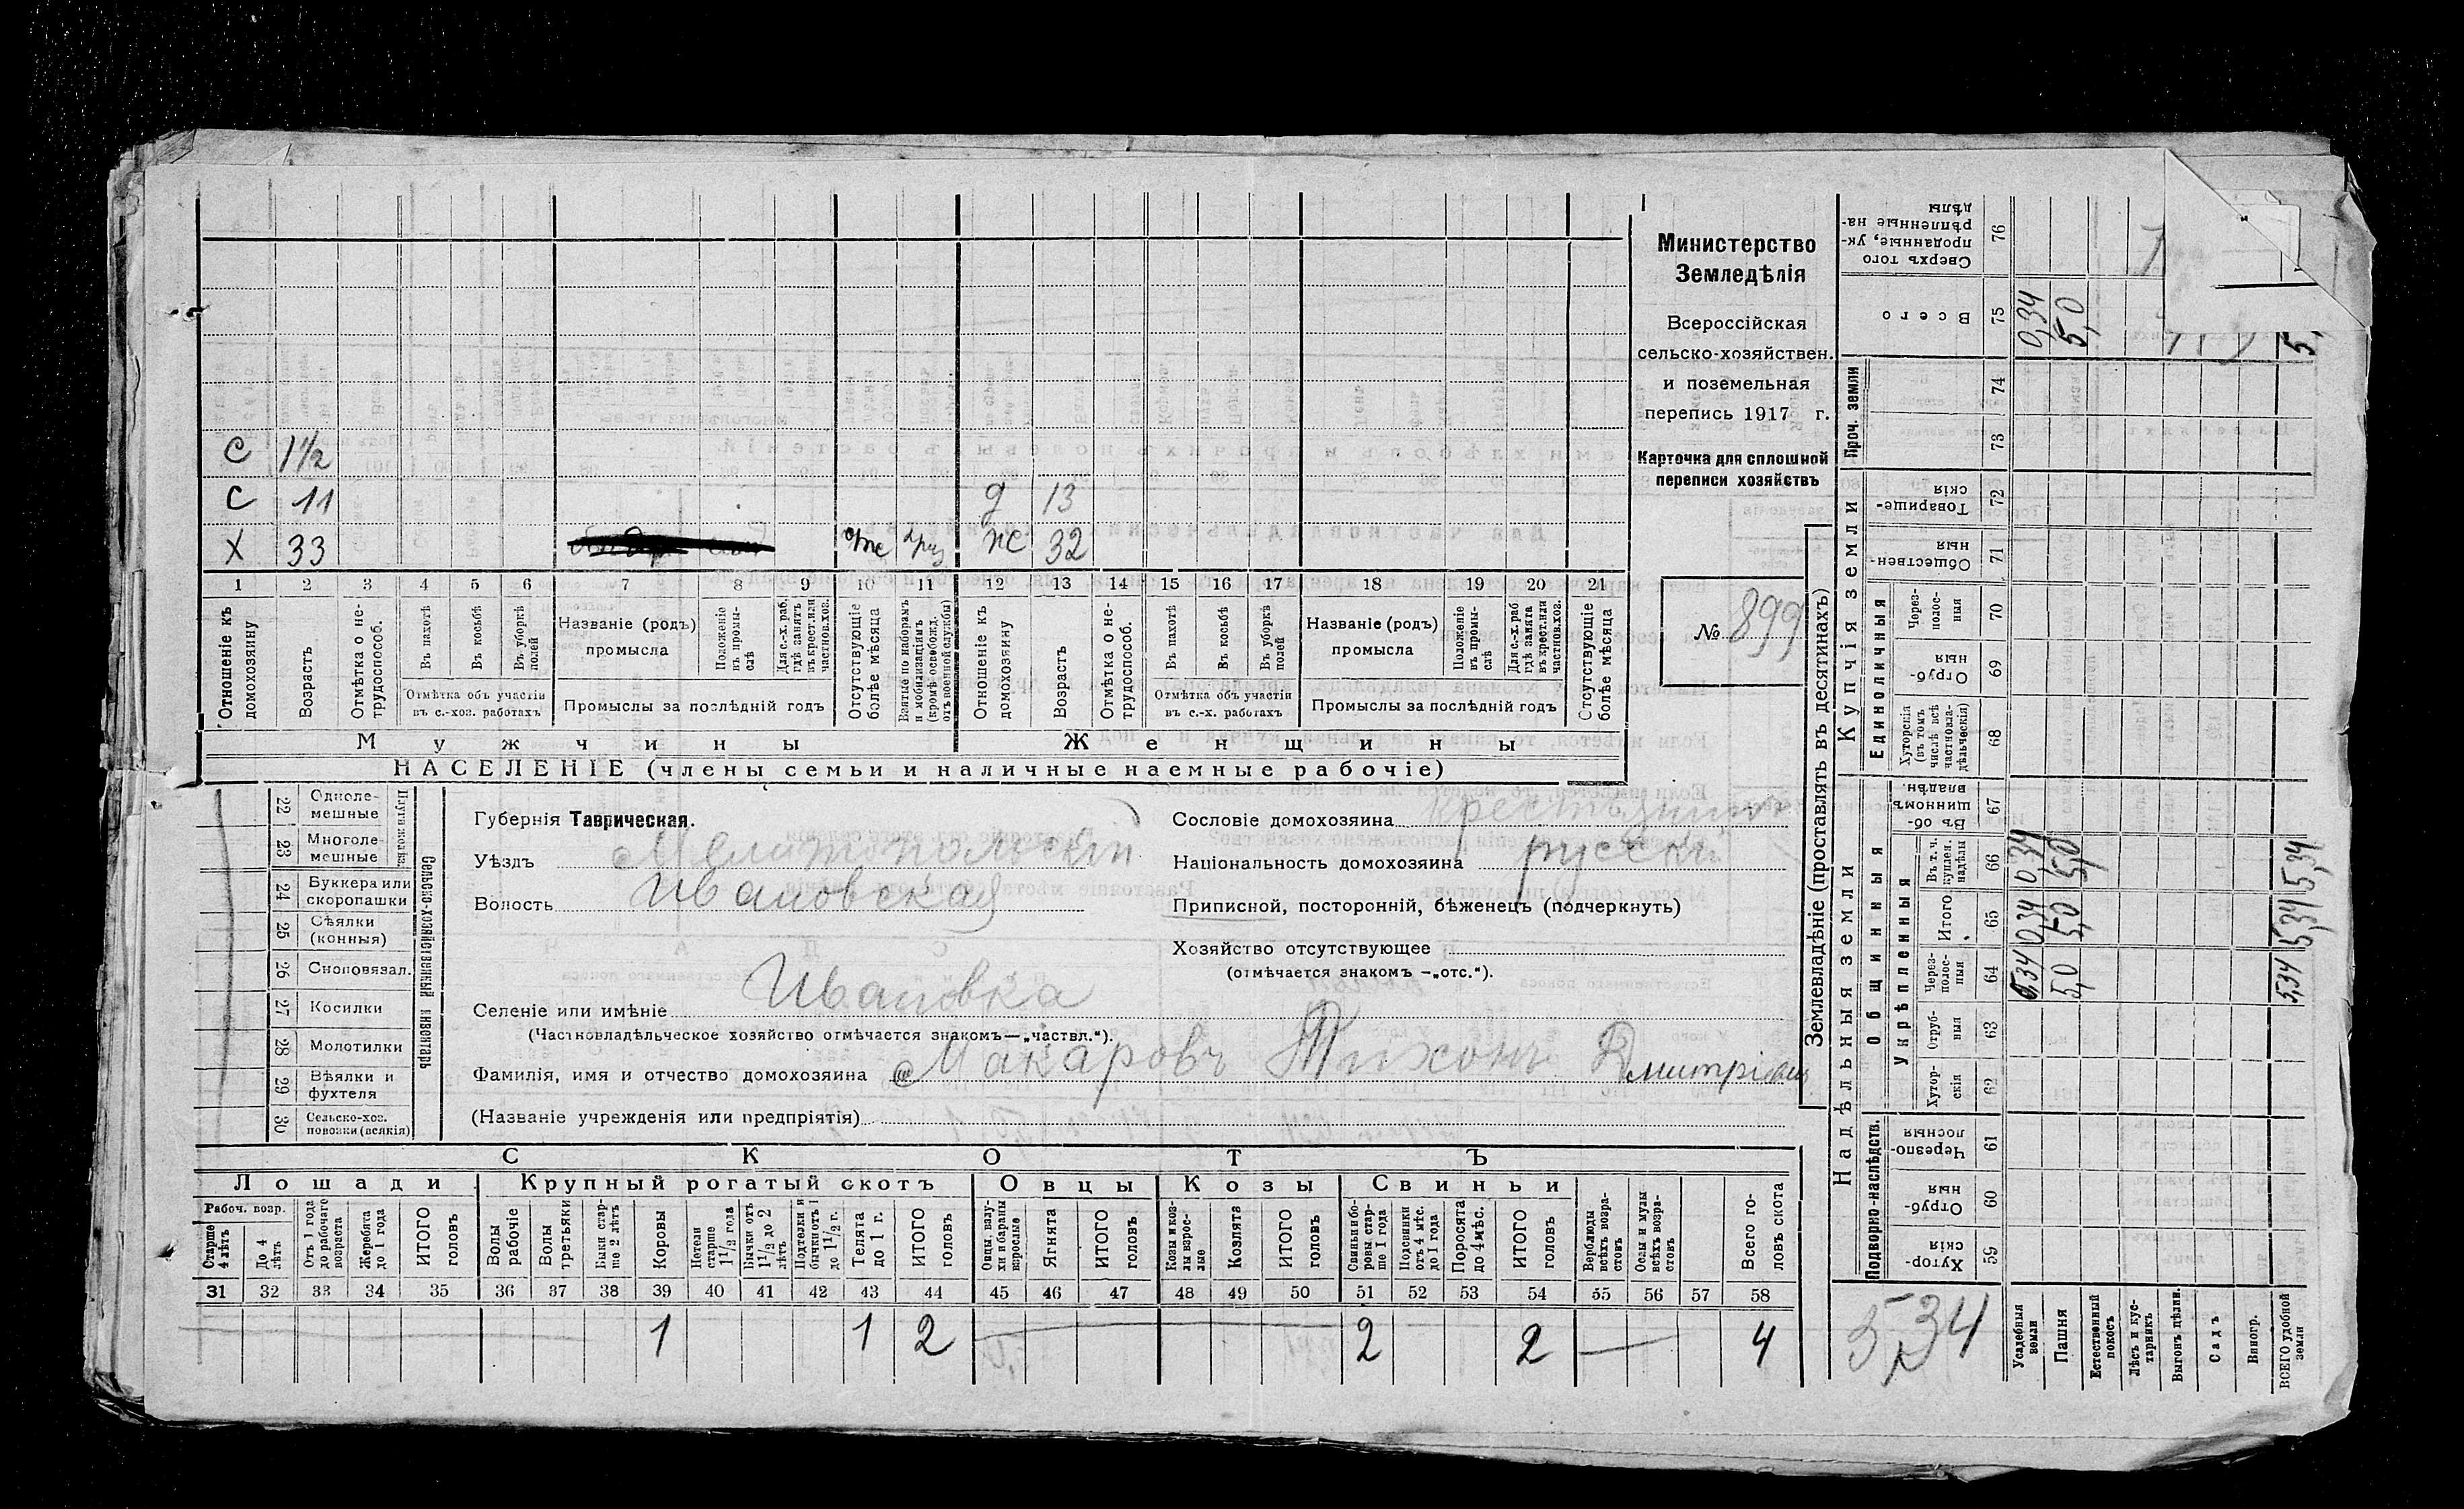 С 1½
С 11 д 13
Х 33 отс приз ж 32
1 2 3 4 5 6 7 8 9 10 11 12 13 14 15 16 17 18 19 20 21
Отношеніе къ домохозяину
Возрастъ
Отмѣтка о нетрудоспособ.
Въ пахотѣ
Въ косьбѣ
Въ уборкѣ полей
Отмѣтка объ участіи
въ с.-хоз. работахъ
Названіе (родъ)
промысла
Положеніе въ промыслѣ
Для с.-х. раб. гдѣ занятъ въ крест. или частнов. хоз.
Промыслы за послѣдній годъ
Отсутствующіе болѣе мѣсяца
Взятые по наборамъ и мобилизаціямъ (кромѣ освобожд. отъ военной службы)
Отношеніе къ домохозяину
Возрастъ
Отмѣтка о нетрудоспособ.
Въ пахотѣ
Въ косьбѣ
Въ уборкѣ полей
Отмѣтка объ участіи
въ с.-х. работахъ
Названіе (родъ)
промысла
Положеніе въ промыслѣ
Для с.-х. раб гдѣ занята въ крест. или частнов. хоз.
Промыслы за послѣдній годъ
Отсутствующіе болѣе мѣсяца
Мужчины Женщины
НАСЕЛЕНІЕ (члены семьи и наличные наемные рабочіе)
Министерство
Земледѣлія
Всероссійская
сельско-хозяйствен.
и поземельная
перепись 1917 г.
Карточка для сплошной
переписи хозяйствъ
№ 899
22 Однолемешные
23 Многолемешные
24 Буккера или скоропашки
25 Сѣялки (конныя)
26 Сноповязал.
27 Косилки
28 Молотилки
29 Вѣялки и фухтеля
30 Сельско-хоз. повозки (всякія)
Сельско-хозяйственный инвентарь
Губернія Таврическая.
Уѣздъ Мелитопольскій
Волость Ивановская
Селеніе или имѣніе Ивановка
(Частновладѣльческое хозяйство отмѣчается знакомъ—„частвл.“).
Фамилія, имя и отчество домохозяина Макаровъ Тихонъ Дмитріев
(Названіе учрежденія или предпріятія)
Сословіе домохозяина крестьянинъ
Національность домохозяина русскій
Приписной, посторонній, бѣженецъ (подчеркнуть)
Хозяйство отсутствующее
(отмѣчается знакомъ —„отс.“).
СКОТЪ
Лошади Крупный рогатый скотъ Овцы Козы Свиньи
Рабоч. возр.
Старше 4 лѣтъ
До 4 лѣтъ
Отъ 1 года до рабочаго возраста
Жеребята до 1 года
ИТОГО головъ
Волы рабочіе
Волы третьяки
Быки старше 2 лѣтъ
Коровы
Нетели старше 1½ года
Бычки отъ 1½ до 2 лѣтъ
Подтелки и бычки отъ 1 до 1½ г.
Телята до 1 г.
ИТОГО головъ
Овцы, валухи и бараны взрослые
Ягнята
ИТОГО головъ
Козы и козлы взрослые
Козлята
ИТОГО головъ
Свиньи и боровы старше 1 года
Подсвинки отъ 4 мѣс. до 1 года
Поросята до 4 мѣс.
ИТОГО головъ
Верблюды всѣхъ возрастовъ
Ослы и мулы всѣхъ возрастовъ
Всего головъ скота
31 32 33 34 35 36 37 38 39 40 41 42 43 44 45 46 47 48 49 50 51 52 53 54 55 56 57 58
1 1 2 2 2 — 4
Землевладѣніе (проставлять въ десятинахъ)
Надѣльныя земли Купчія земли Проч. земли
Подворно-наслѣдств. Общинныя Единоличныя
Укрѣпленныя
Хуторскія 59
Отрубныя 60
Черезполосныя 61
Хуторскія 62
Отрубныя 63
Черезполосныя 64
Итого 65
Въ т. ч. куплен. надѣлы 66
Въ общинномъ владѣн. 67
Хуторскія (въ томъ числѣ всѣ частновладѣльческія) 68
Отрубныя 69
Черезполосныя 70
Общественныя 71
Товарищескія 72
73
74
Всего 75
Сверхъ того проданные, укрѣпленные надѣлы 76
5,34
Усадебныя земли 0,34 0,34 0,34 0,34
Пашня 5,0 5,0 5,0 5,0
Естественный покосъ
Лѣсъ и кустарникъ
Выгонъ дѣлин.
Садъ
Виногр.
ВСЕГО удобной земли 5,34 5,34 5,34 5,